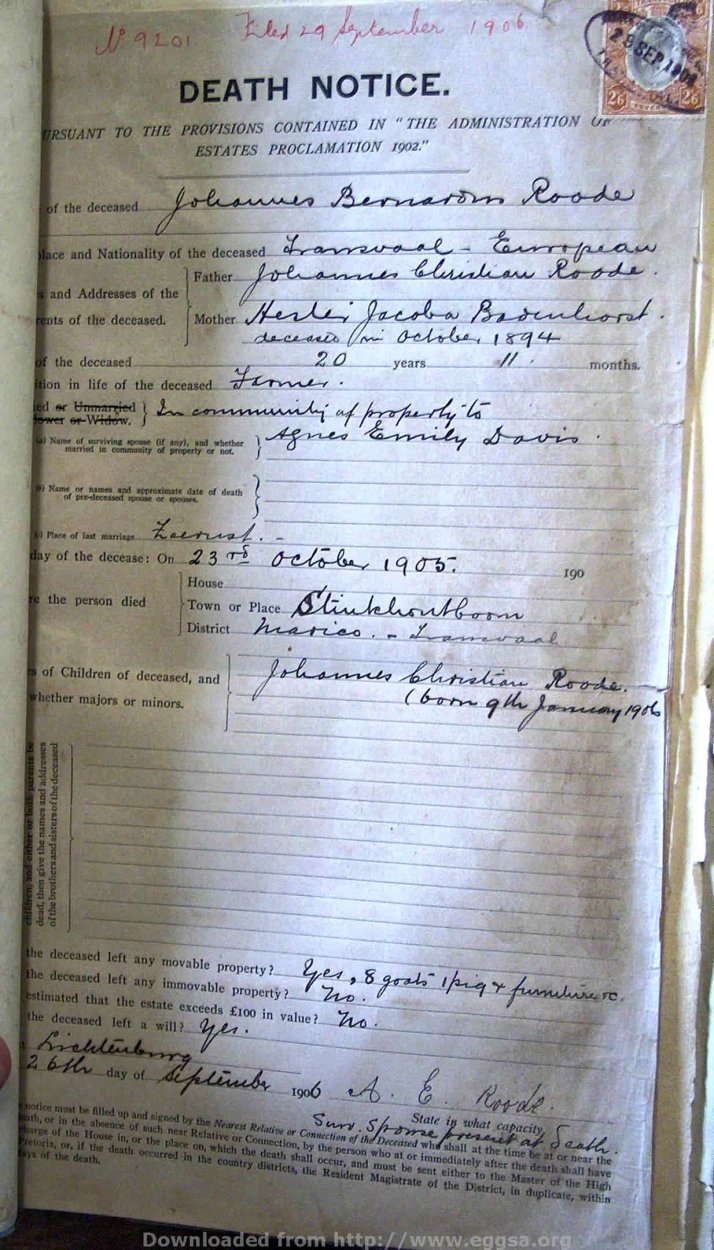 No 9201 Filed 29 September 1906
29 SEP 1906
26 26
DEATH NOTICE.
URSUANT TO THE PROVISIONS CONTAINED IN "THE ADMINISTRATION OF
ESTATES PROCLAMATION 1902."
of the deceased Johannes Bernardus Roode
lace and Nationality of the deceased Transvaal - European
Father Johannes Christian Roode.
s and Addresses of the
rents of the deceased.
Mother Hester Jacoba Badenhorst.
deceased in October 1894
of the deceased 20 years 11. months.
tion in life of the deceased Farmer.
ed or Unmarried
ower or Widow.
In community of property to
(a) Name of surviving spouse (if any), and whether
married in community of property or not.
Agnes Emily Davis.
(b) Name or names and approximate date of death
of pre-deceased spouse or spouses.
(c) Place of last marriage Zeerust. -
day of the decease: On 23rd October 1905. 190
House
re the person died Town or Place Stinkhoutboom
District Marico. - Transvaal
s of Children of deceased, and
whether majors or minors.
Johannes Christian Roode.
(born 9th January 1906
children, and either or both parents be
dead, then give the names and addresses
of the brothers and sisters of the deceased
the deceased left any movable property? Yes, 8 goats 1 pig & furniture &c.
the deceased left any immovable property? No.
estimated that the estate exceeds £100 in value? No.
the deceased left a will? Yes.
Lichtenburg
26th day of September 1906 A. E. Roode.
State in what capacity
Surv. Spouse present at Death.
notice must be filled up and signed by the Nearest Relative or Connection of the Deceased who shall at the time be at or near the
eath, or in the absence of such near Relative or Connection, by the person who at or immediately after the death shall have
harge of the House in, or the place on, which the death shall occur, and must be sent either to the Master of the High
Pretoria, or, if the death occurred in the country districts, the Resident Magistrate of the District, in duplicate, within
ays of the death.
Downloaded from http://www.eggsa.org